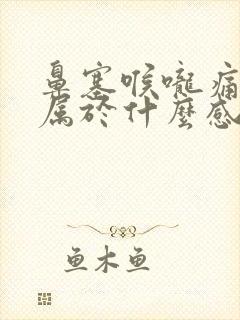 鼻塞喉嚨痛
属於什麼感
鱼木鱼